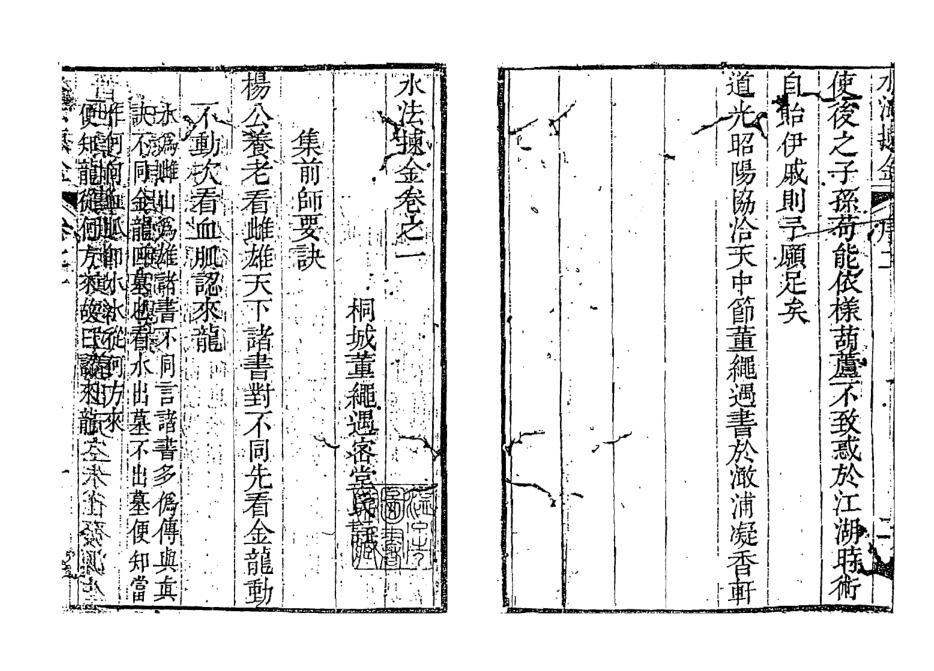 水法㨿金 序 二
使後之子孫苟能依樣葫蘆不致惑於江湖時術
自貽伊戚則予願足矣
道光昭陽協洽天中節董繩遇書於澉浦凝香軒
水法㨿金卷之一
桐城董繩遇密堂氏註
集前師要訣
楊公養老看雌雄天下諸書對不同先看金龍動
不動次看血脈認來龍
水爲雌山爲雄諸書不同言諸書多僞傳與真
訣不同金龍四墓也看水出墓不出墓便知當
作何局血脈卽水水從何方來
便知龍從何方來故曰認來龍